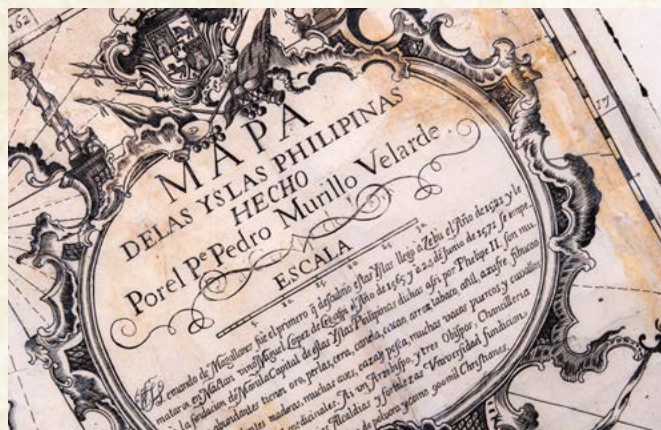 162
17
MAPA
DELAS YSLAS PHILIPINAS
HECHO
Porel Pe Pedro Murillo Velarde.
ESCALA
Fernando de Magallanes fue el primero q descubrio estas Yslas llegó a Zebu el Año de 1521 y le
mataron en Mactan vino Miguel Lopez de Legaspi el Año de 1565 y a 24 de Junio de 1571 Se empe
la fundacion de Manila Capital de estas Yslas Philipinas dichas assi por Phelipe II. son mu
abundantes tienen oro, perlas, cera, canela, cacao, arroz, tabaco, anil, azufre, sibucao
maderas, muchas aves, caza y pesca, muchas vacas puercos y cavallos
medicinales. Ai un Arzobispo, y tres Obispos, Chancilleria
Alcaldias y fortalezas Universidad fundicion
de polvora y como 900 mil Christianos.